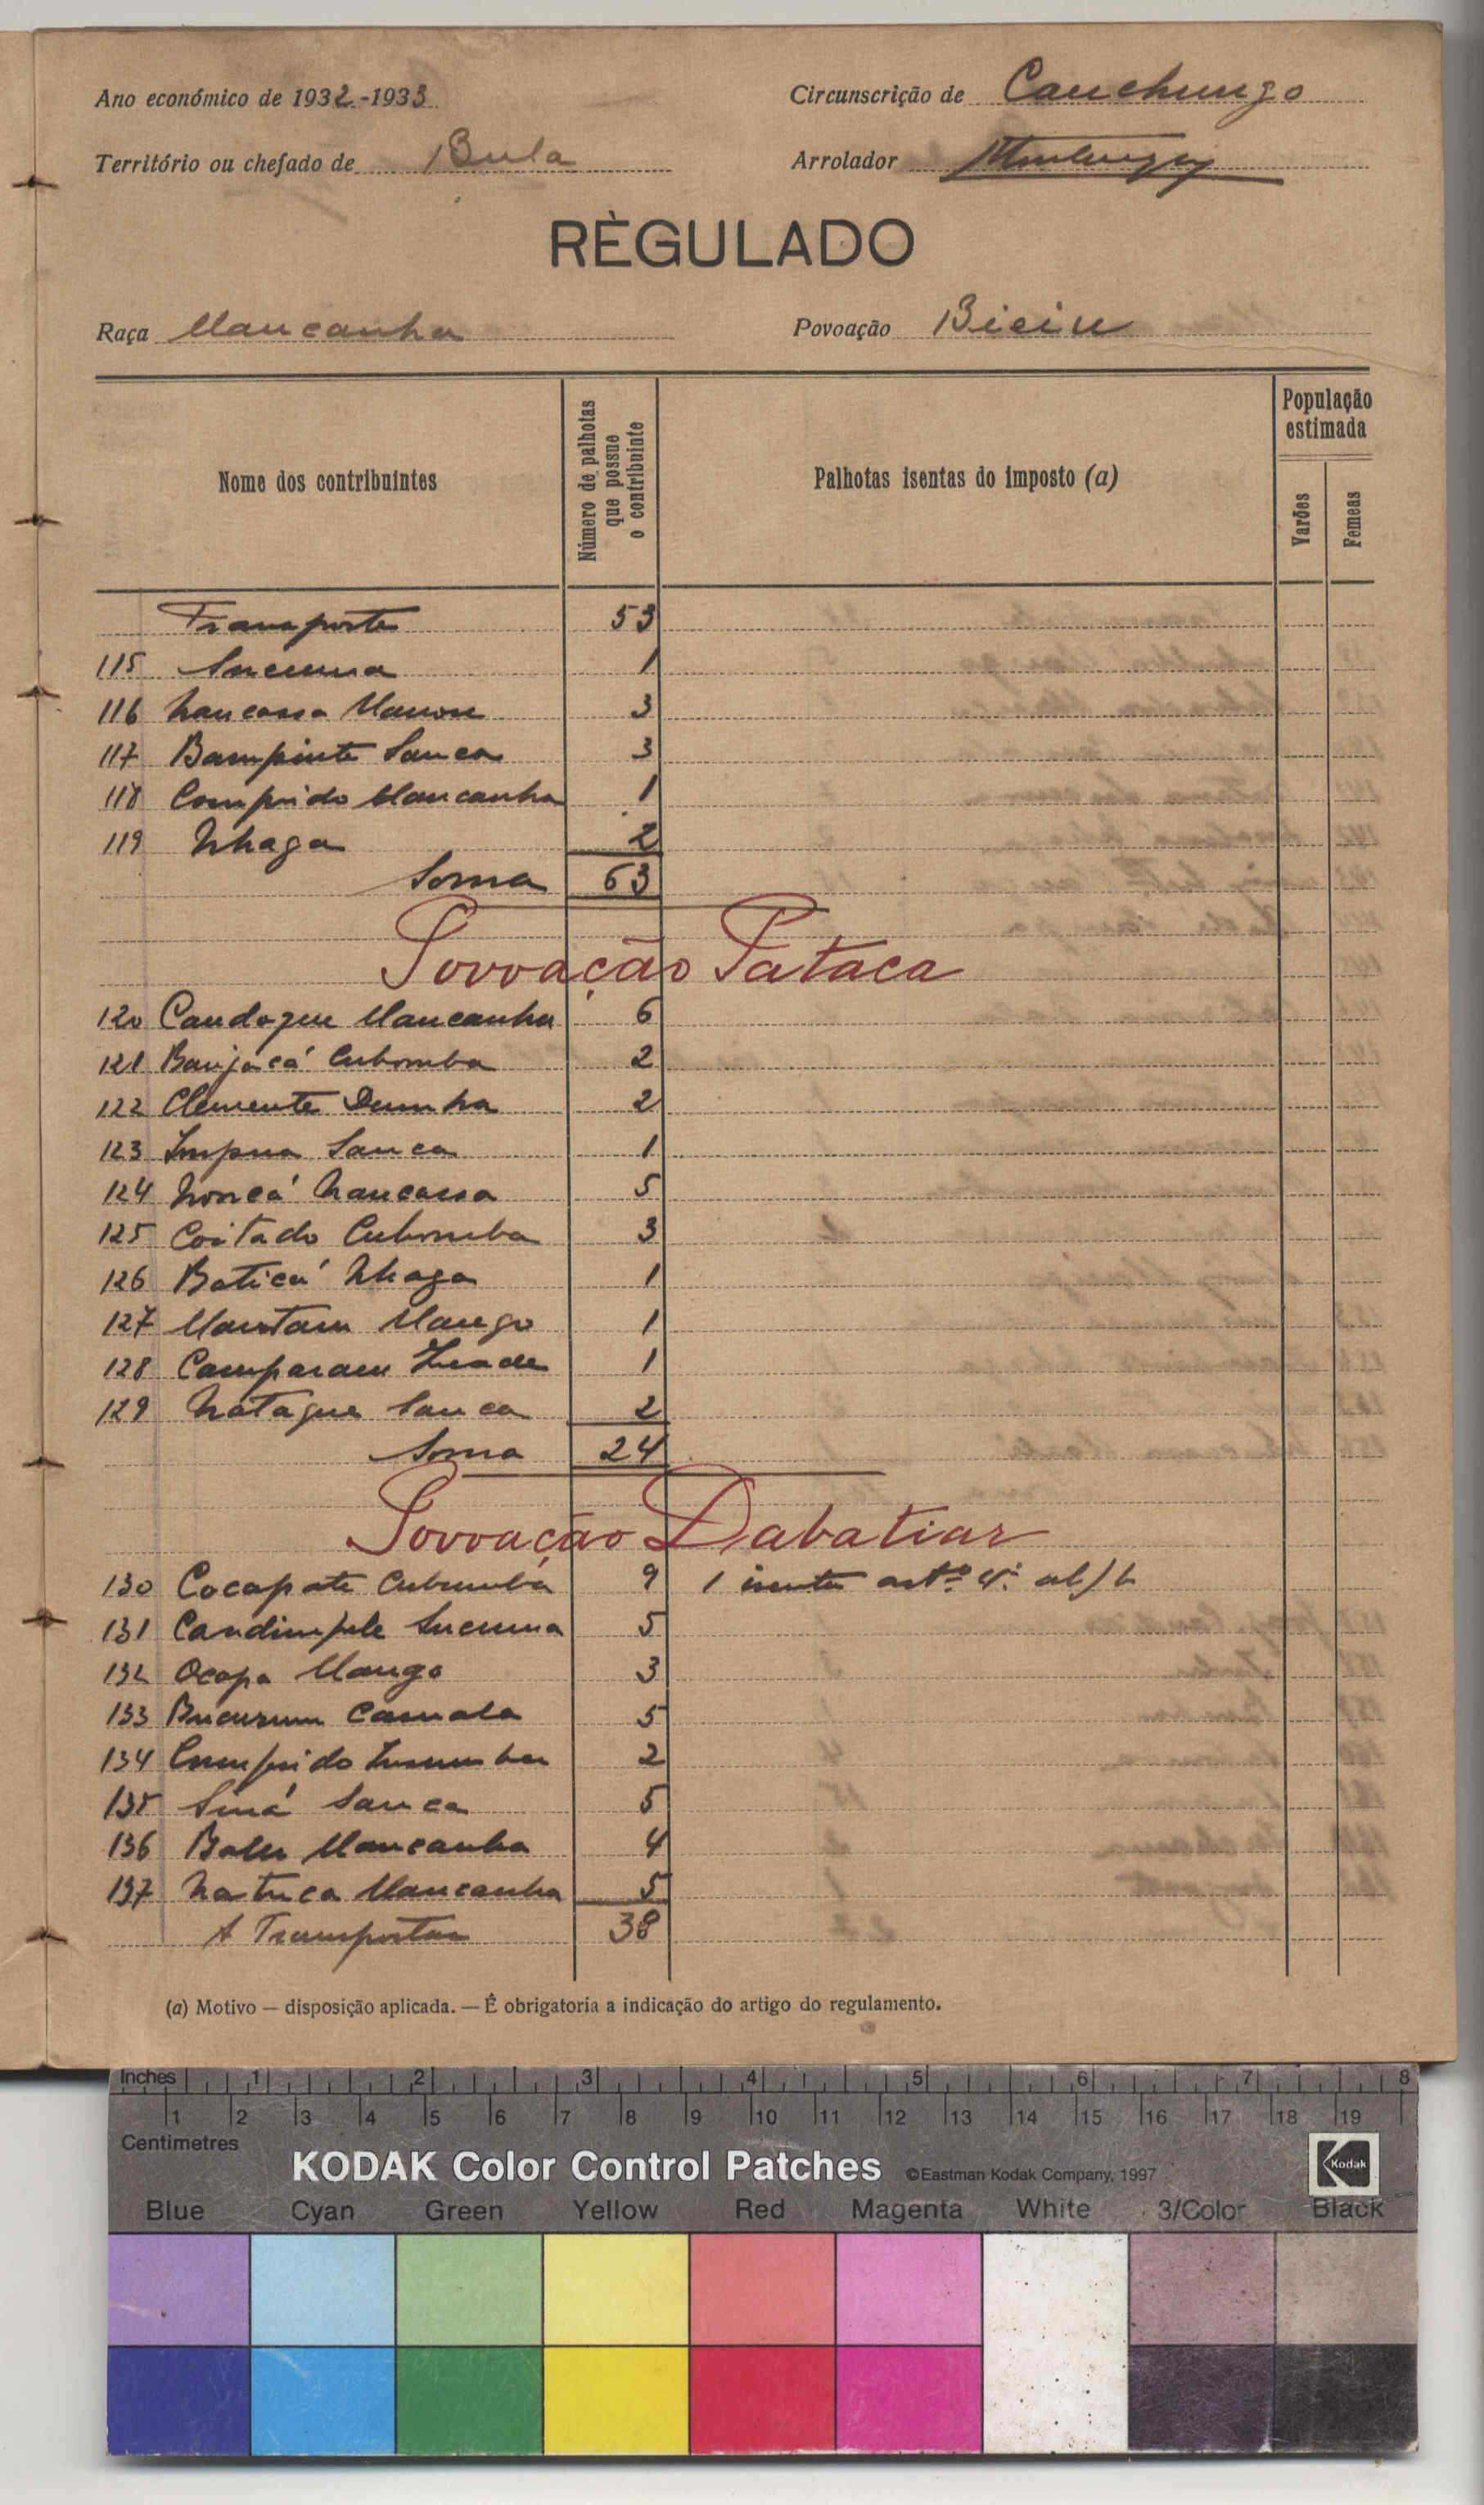 Ano económico de 1932-1933
Circunscrição de Canchungo
Território ou chefado de Bula
Arrolador
RÈGULADO
Raça Mancanha
Povoação Bieiu
Nome dos contribuintes
Número de palhotas que possue o contribuinte
Palhotas isentas do imposto (a)
População estimada
Varões
Femeas
Transporte 53
115 Sucuma 1
116 Nancassa Manou 3
117 Bampinte Sanca 3
118 Comprido Mancanha 1
119 Nhaga 2
Soma 63
Povoação Pataca
120 Candoque Mancanha 6
121 Banjacá Cubomba 2
122 Clemente Dumha 2
123 Impua Sanca 1
124 Noncá Nancassa 5
125 Coitado Cubomba 3
126 Baticá Nhaga 1
127 Mantam Mango 1
128 Camparam 1
129 Natague Sanca 2
Soma 24
Povoação Dabatiar
130 Cocapate Cubumbá 9 1 isenta artº 4º al/b
131 Candimpele Sucuma 5
132 Ocapa Mango 3
133 Bucurum Camala 5
134 Cumprido 2
135 Siná Sanca 5
136 Balu Mancanha 4
137 Natuca Mancanha 5
A Transportar 38
(a) Motivo — disposição aplicada. — É obrigatoria a indicação do artigo do regulamento.
Inches 1 2 3 4 5 6 7 8
1 2 3 4 5 6 7 8 9 10 11 12 13 14 15 16 17 18 19
Centimetres
KODAK Color Control Patches ©Eastman Kodak Company, 1997 Kodak
Blue Cyan Green Yellow Red Magenta White 3/Color Black